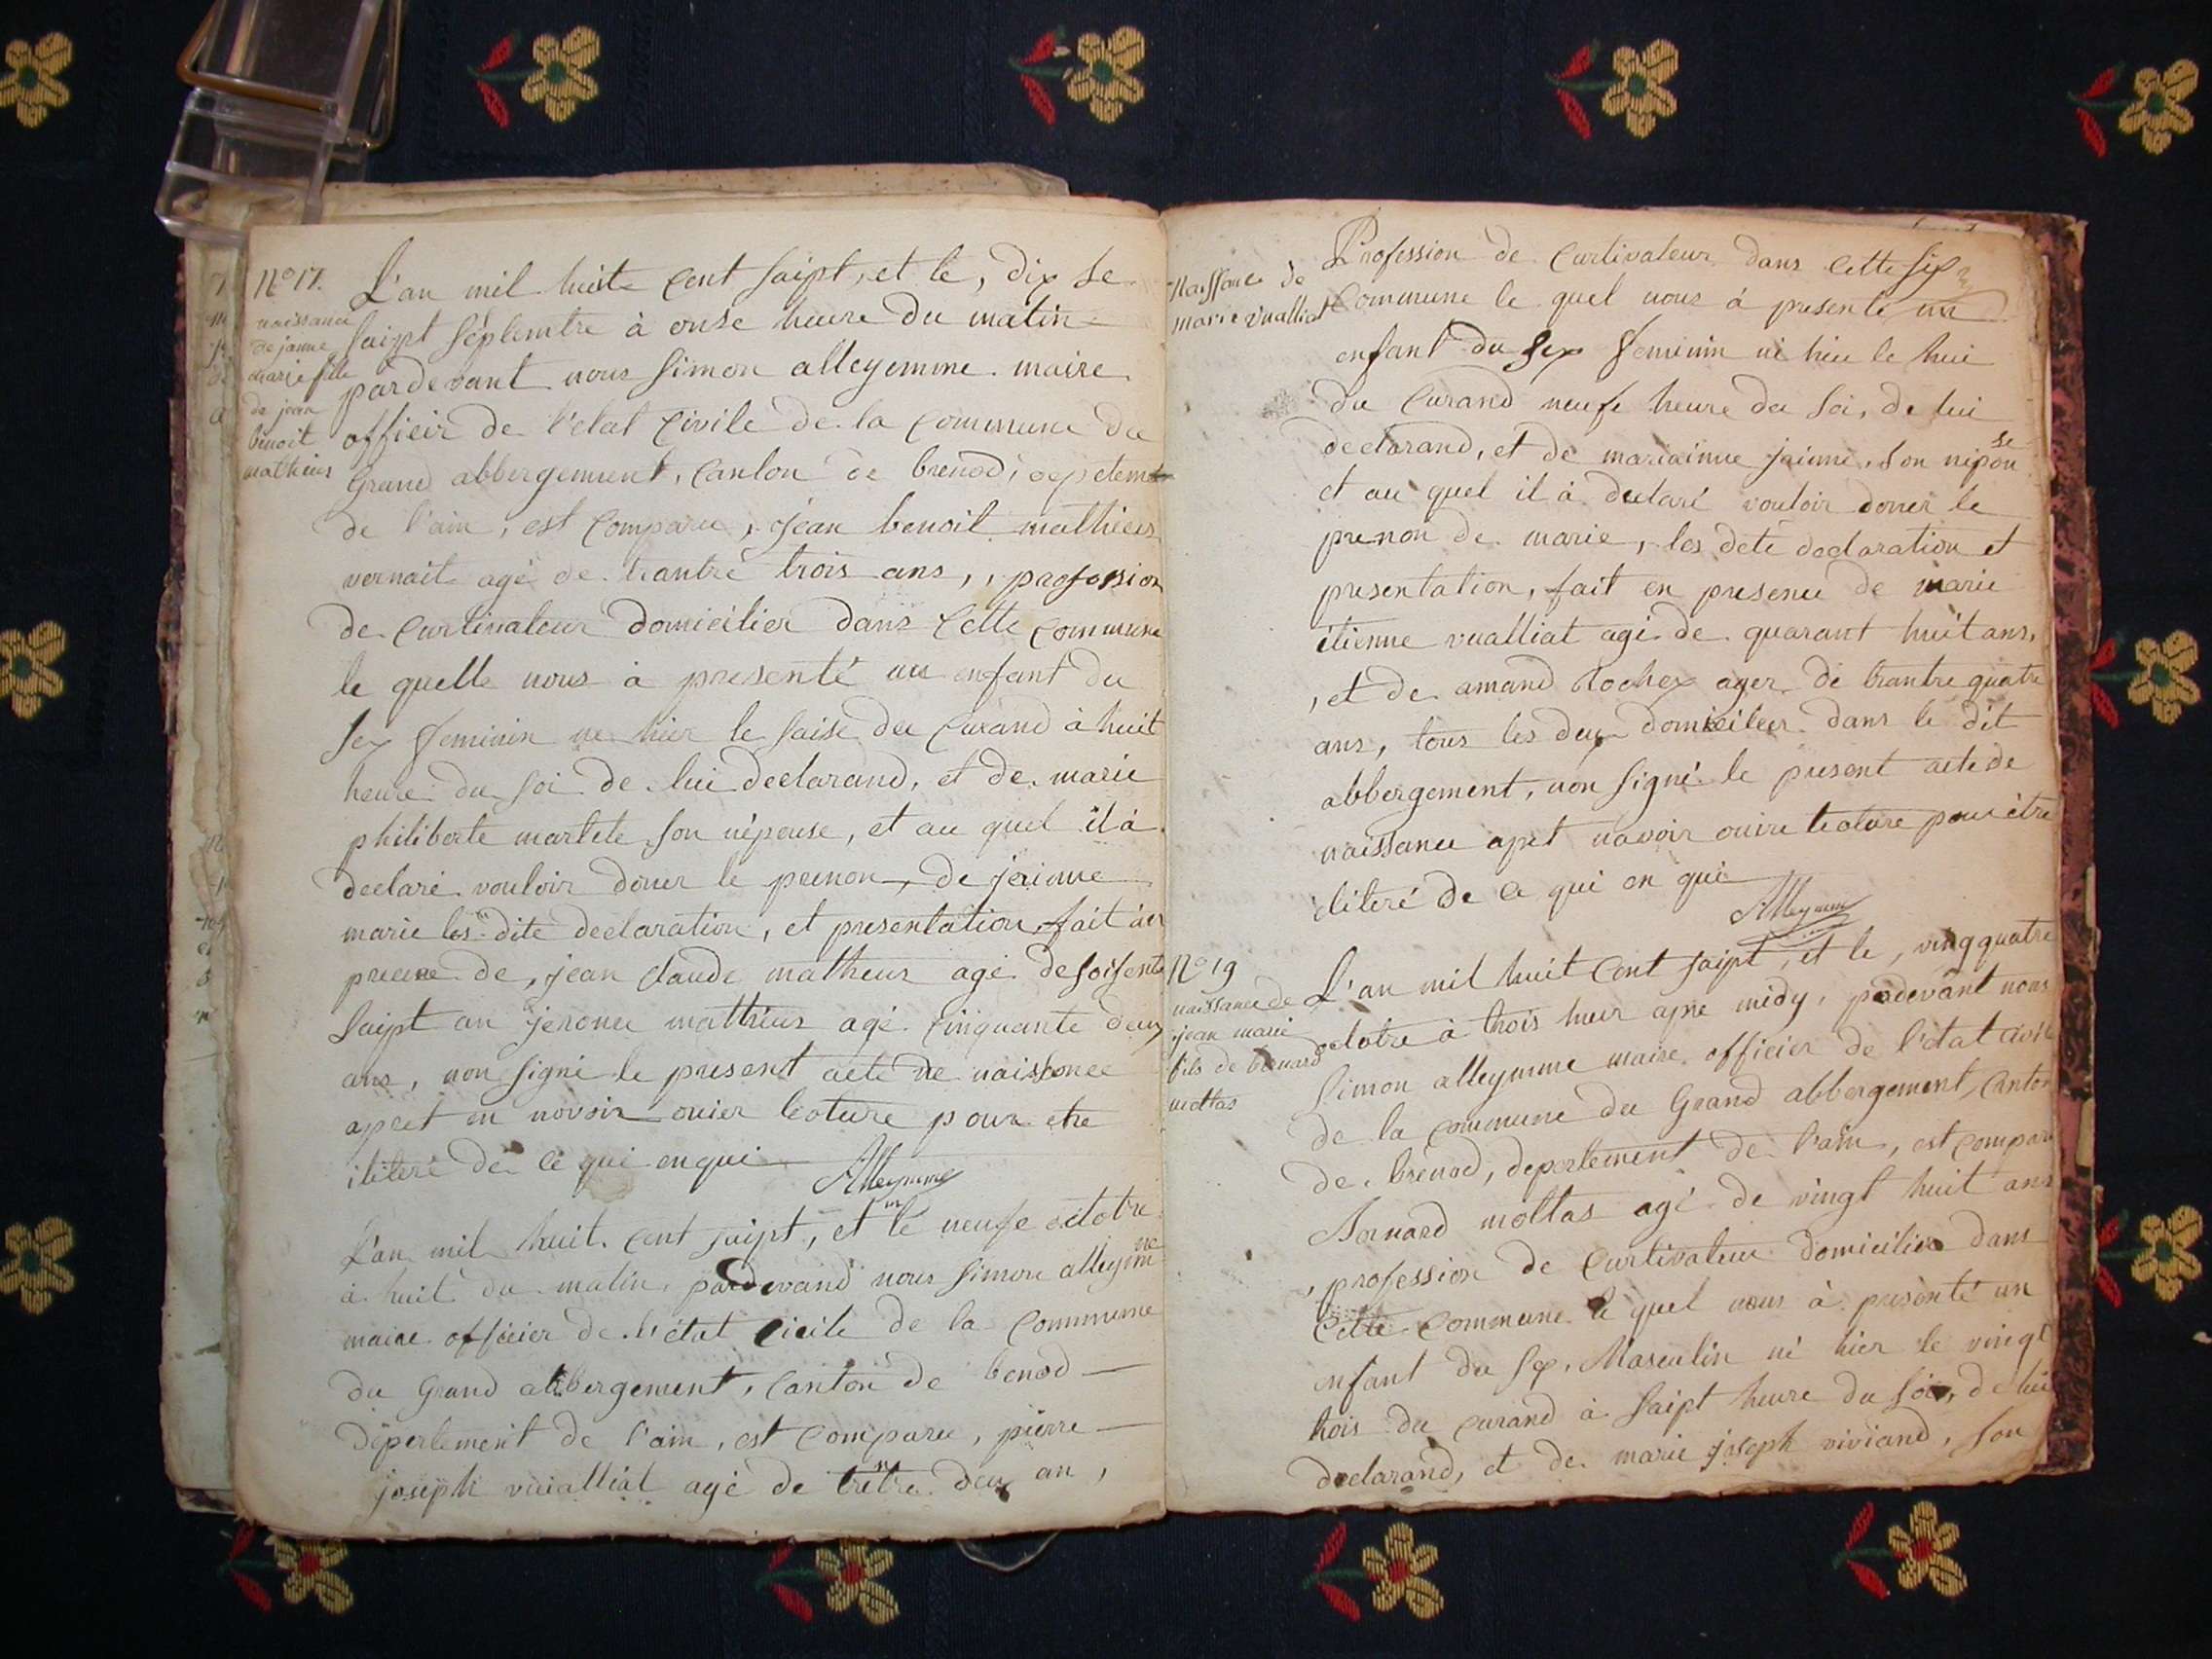 N° 17.
naissance
de jaune
marie fille
de jean
benoit
matheus
L'an mil huit cent saipt, et le, dix se
saipt séptembre à onse heure du matin
pardevant nous simon alleyemme maire
officir de l'état civile de la commune du
Grand abbergement, canton de brenod,
de l'ain, est comparu, jean benoit mathieus
vernait agé de trantre trois ans, profession
de curtivateur domicilier dans cette commune
le quelle nous à presenté un enfant du
sex feminin ne hier le saise du curand à huit
heure du soi de lui declarand, et de marie
philiberte martele son népouse, et au quel il à
declaré vouloir doner le prenon, de jeainne
marie les dite declaration, et presentation, fait à en
precne de, jean claude matheus agé de soisente
saipt an jerome matthieus agé cinquante deux
ans, non signé le present acte de naissonce
apret en navoir ouier leoture pour etre
iliteré de ce qui en qui
Alleymme
L'an mil huit cent saipt, et le neufe octobre
à huit du matin, pardevand nous simon alleymme
maire officier de l'état cicile de la commune
du Grand abbergement, canton de benod
dépertement de l'ain, est comparu, pierre
joseph vuialliat agé de trentre deux an,
Naissance de
marie vualliat
Profession de curtivateur dans cette six
commune le quel nous à presenté un
enfant du sex feminin né hier le hui
du curand neufe heure du soi, de lui
declarand, et de mariainne jainne, son néponse
et au quel il à declaré vouloir doner le
prenon de marie, les dete declaration et
presentation, fait en presence de marie
étienne vualliat agé de quarant huit ans,
, et de amand Rochex ager de trantre quatre
ans, tous les deux domicilier dans le dit
abbergement, non signé le present acte de
naissance apret navoir ouire leoture pour être
éliteré de ce qui en qui
Alleymme
N° 19
naissance de
jean marie
fils de benard
mottas
L'an mil huit cent saipt, et le, vingquatre
octobre à trois heur apre midy, padevant nous
simon alleymme maire officier de l'état civile
de la commune du Grand abbergement, canton
de brénod, depertement de l'ain, est comparu
Bernard moltas agé de vingt huit ans
, profession de curtivateur domicilier dans
cette commune le quel nous à présenté un
enfant du sex, Masculin né hier le vingt
trois du curand à saipt heure du soir, de lui
declarand, et de marie joseph viviand, son